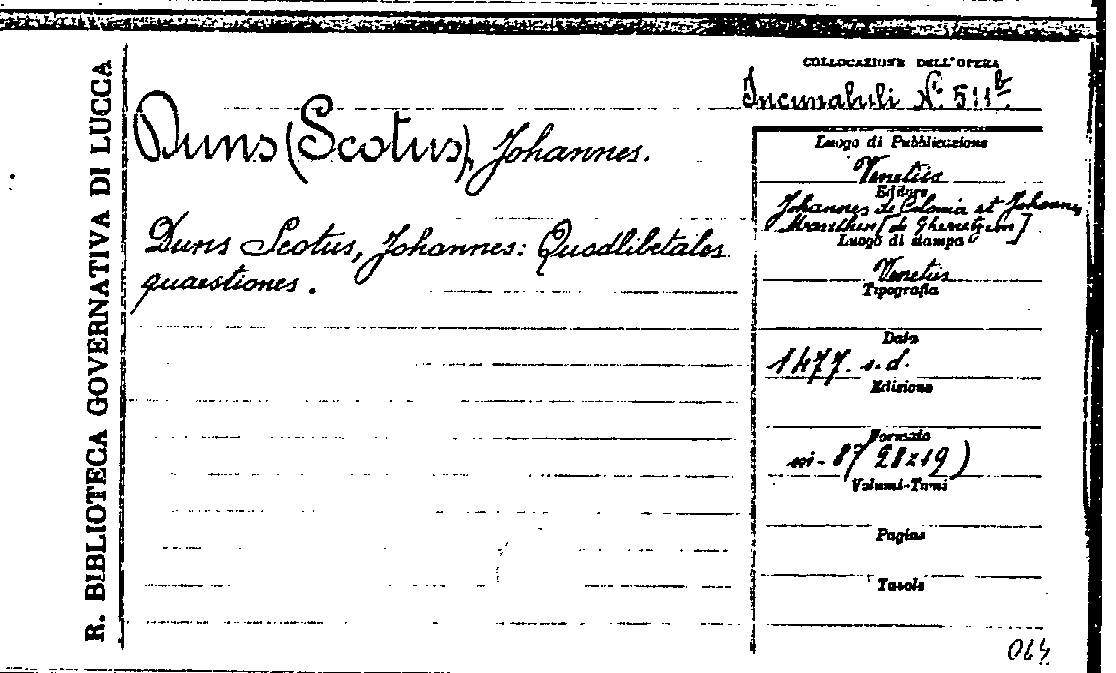 R. BIBLIOTECA GOVERNATIVA DI LUCCA
Duns (Scotus), Johannes.
Duns Scotus, Johannes: Quodlibetales
quaestiones.
COLLOCAZIONE DELL'OPERA
Incunabuli N. 511b
Luogo di Pubblicazione
Venetiis
Editore
Johannes de Colonia et Johannes
Manthen [de Gherretzem]
Luogo di stampa
Venetiis
Tipografia
Data
1477. s.d.
Edizione
Formato
in-8º (28x19)
Volumi-Tomi
Pagine
Tavole
064